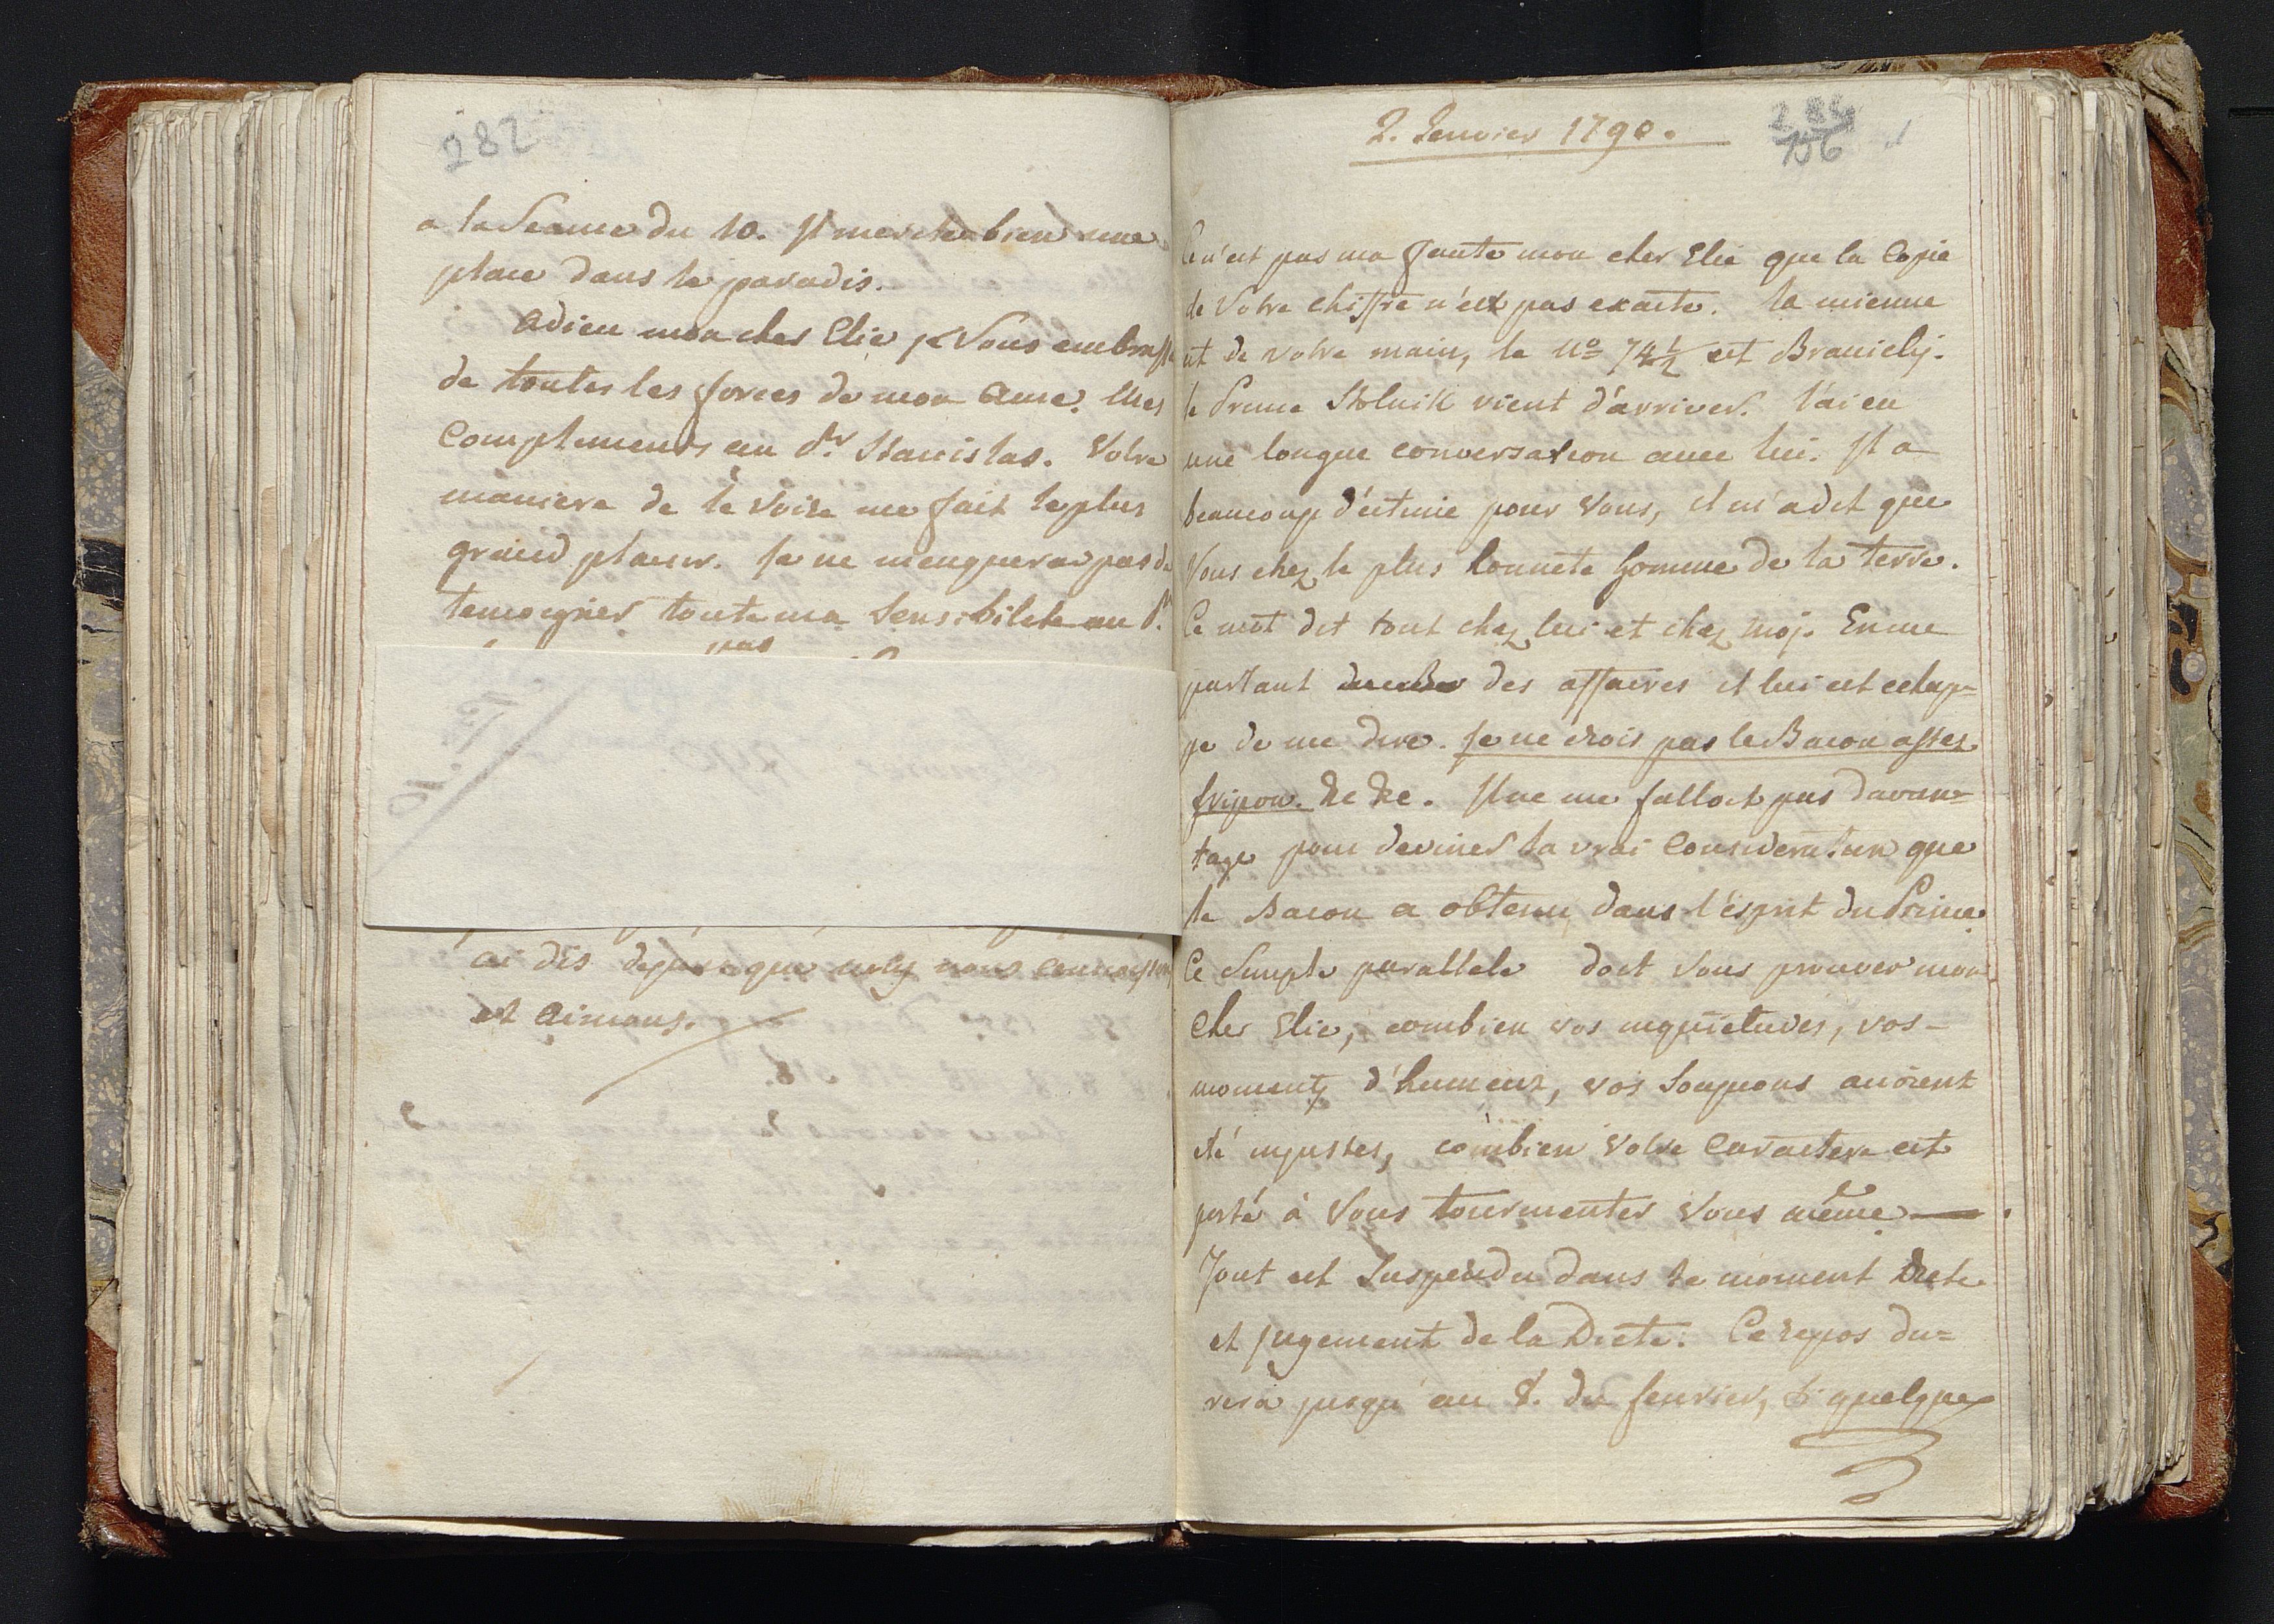 282
a la Seance du 10. Il merite bien une
place dans le paradis.
Adieu mon cher Elie je Vous embrasse
de toutes les forces de mon Ame. Mes
Complimens au Pr Stanislas. Votre
maniere de le voire me fait le plus
grand plaisir. Je ne menquerai pas de
temoigner toute ma Sensibilité au Pr.
pas
ai dis depuis que nous connaissons
et aimons.
2. Janvier 1790.
284
156
Ce n'est pas ma faute mon cher Elie que la Copie
de Votre chiffre n'est pas exacte. la mienne
est de votre main, le No 74½ est Branicky.
le Prince Stolnik vient d'arriver. J'ai eu
une longue conversation avec lui. Il a
beaucoup d'estime pour Vous, il m'a dit que
Vous etez le plus honnete homme de la terre.
Ce mot dit tout chez lui et chez moj. En me
parlant des affaires il lui est echap=
pe de me dire. Je ne crois pas le Baron assez
fripon. &c &c. Il ne me falloit pas davan=
tage pour deviner la vrai Consideration que
le Baron a obtenu dans l'ésprit du Prince.
Ce Simple parallele doit Vous prouver mon
Cher Elie, combien vos inquietudes, vos
moments d'humeur, vos Soupçons avoient
eté injustes, combien Votre Caractere est
porté à Vous tourmenter Vous même.
Tout est Suspendu dans le moment Diete
et jugement de la Diete. Ce repos du=
rera jusqu'au 8. du fevrier, Si quelque